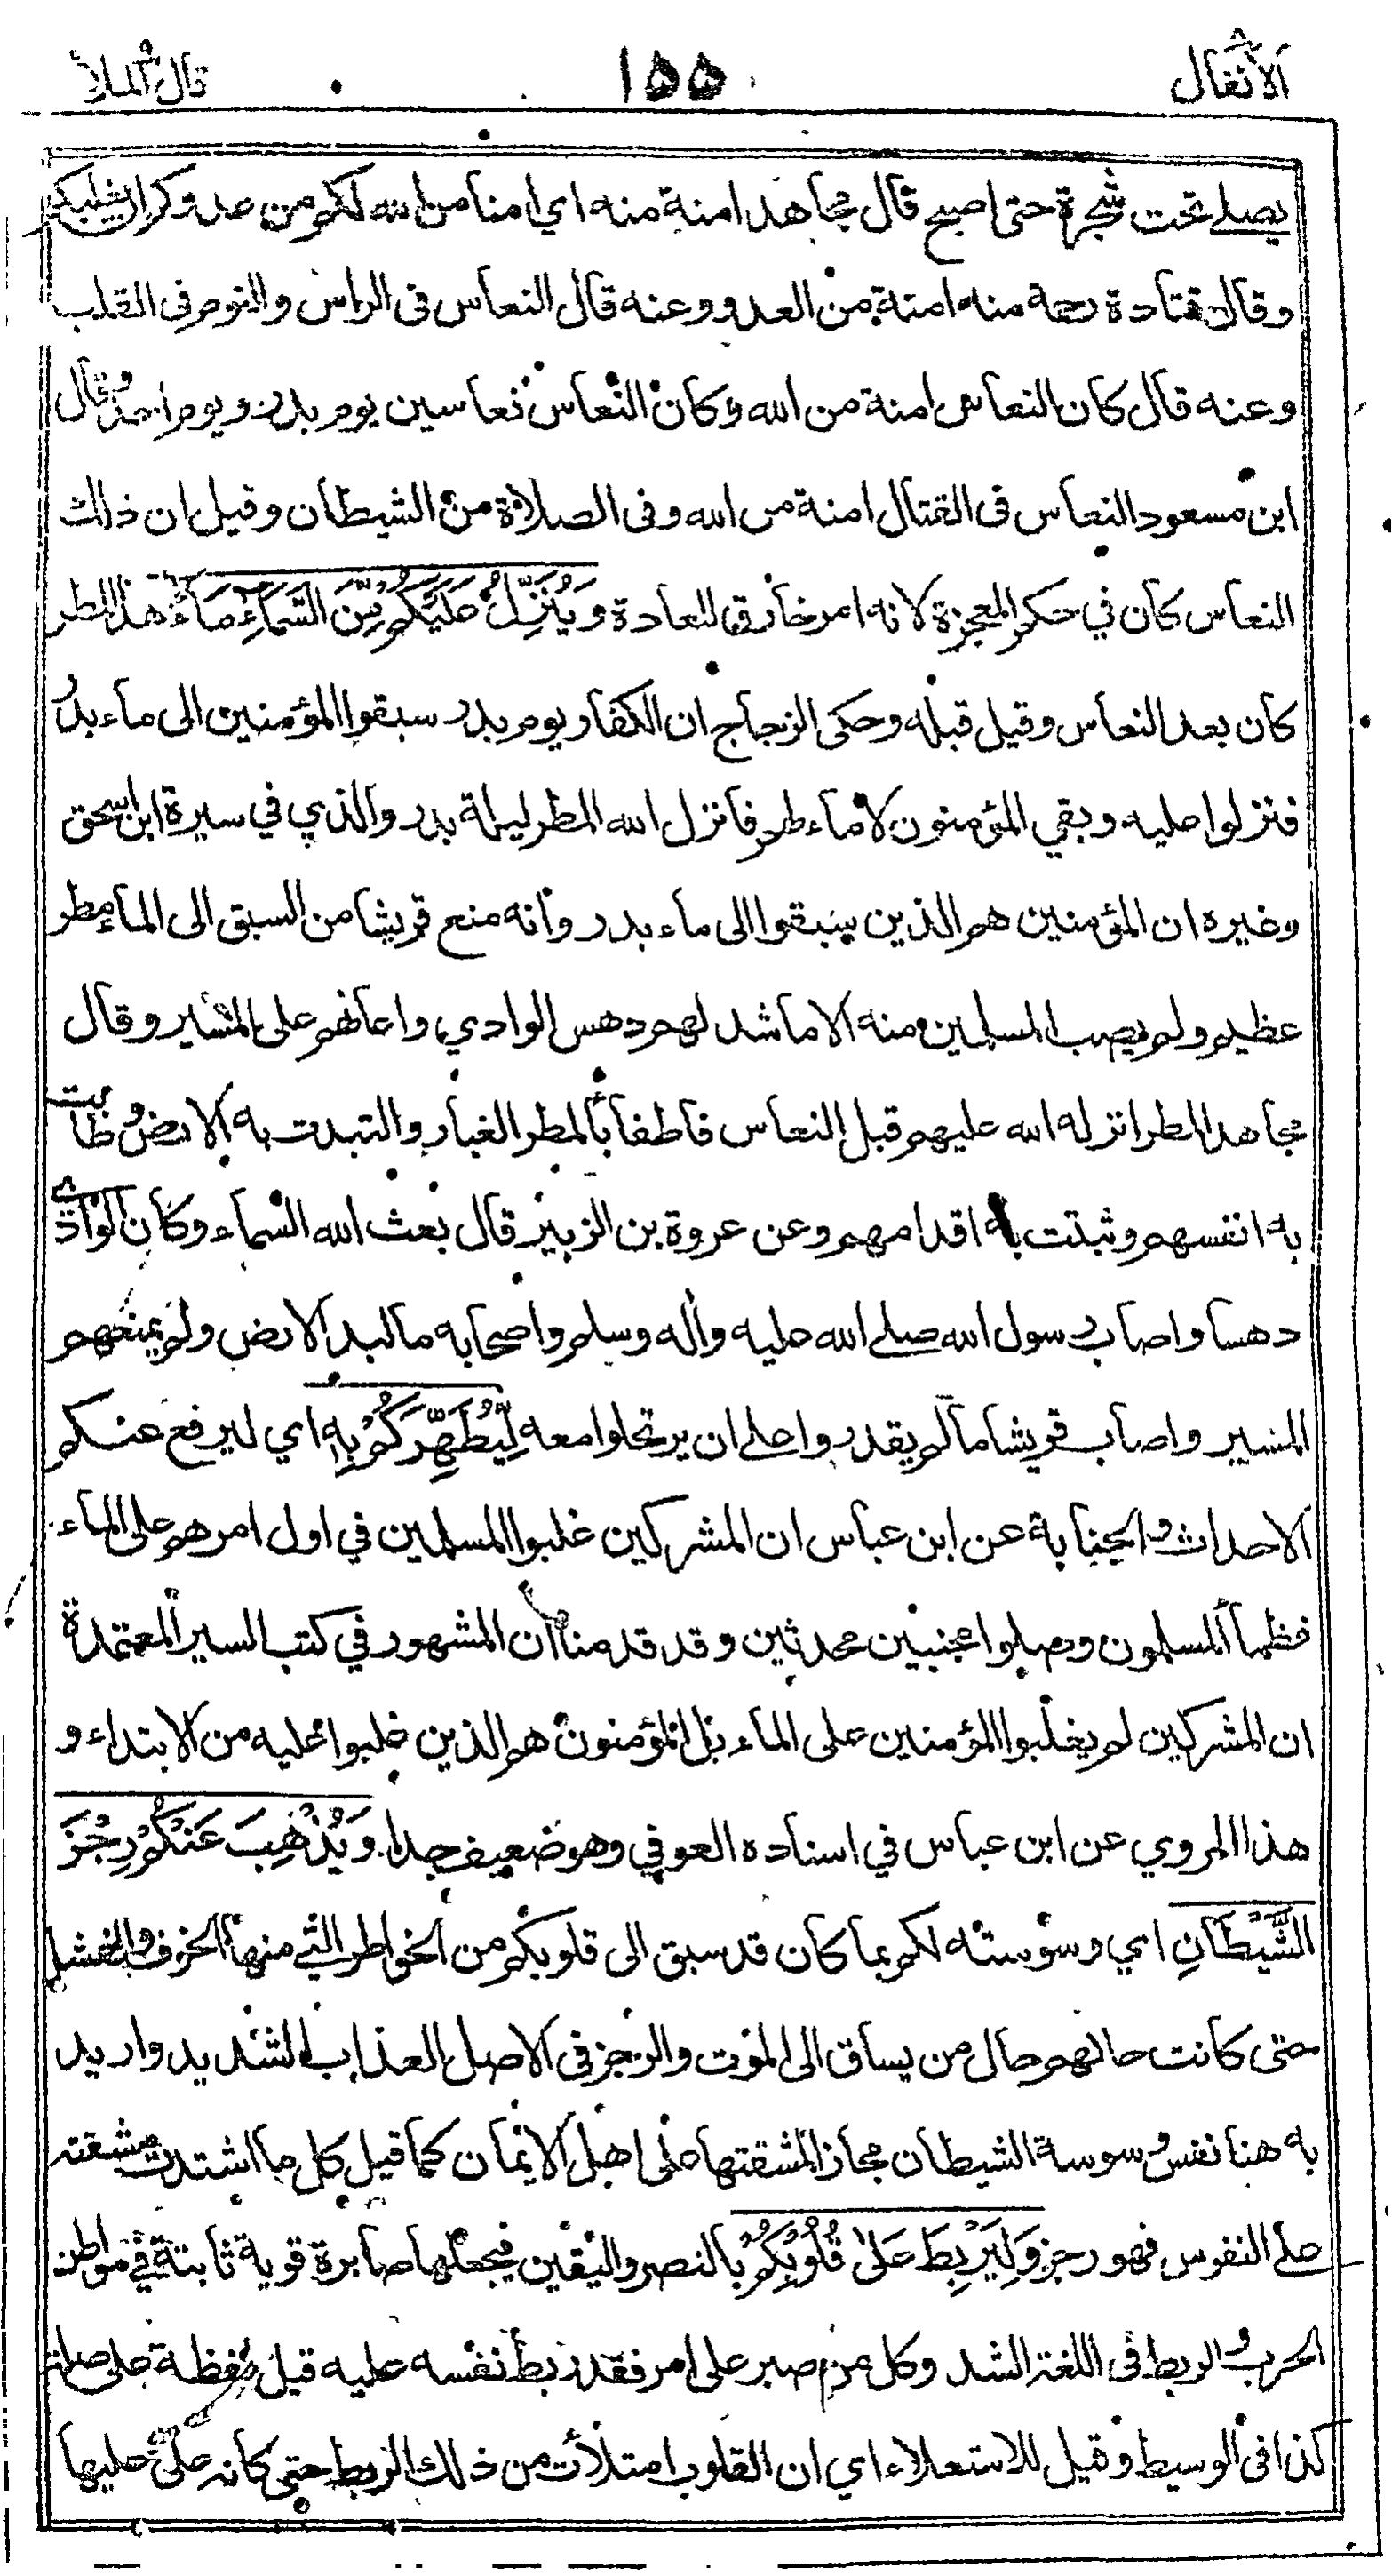 الأنفال ١٥٥ قال الملأ
يصلي تحت شجرة حتى اصبح قال مجاهد امنة منه اي امنا من الله لكم من عدوكم ان يغلبكم
وقال قتادة رحمة منه امنة من العدو وعنه قال النعاس فى الراس والنوم فى القلب
وعنه قال كان النعاس امنة من الله وكان النعاس نعاسين يوم بدر ويوم احد وقال
ابن مسعود النعاس فى القتال امنة من الله وفى الصلاة من الشيطان وقيل ان ذلك
النعاس كان في حكم المعجزة لانه امر خارق للعادة وَيُنَزِّلُ عَلَيْكُم مِّنَ السَّمَاءِ مَاءً هذا المطر
كان بعد النعاس وقيل قبله وحكى الزجاج ان الكفار يوم بدر سبقوا المؤمنين الى ماء بدر
فنزلوا عليه وبقي المؤمنون لا ماء لهم فانزل الله المطر ليلة بدر والذي في سيرة ابن اسحق
وغيره ان المؤمنين هم الذين سبقوا الى ماء بدر وانه منع قريشا من السبق الى الماء مطر
عظيم ولم يصب المسلمين منه الا ما شد لهم دهس الوادي واعانهم على المسير وقال
مجاهد المطر انزله الله عليهم قبل النعاس فاطفأ بالمطر الغبار والتبدت به الارض وطابت
به انفسهم وثبتت به اقدامهم وعن عروة بن الزبير قال بعث الله السماء وكان الوادي
دهسا واصاب رسول الله صلى الله عليه وأله وسلم واصحابه ما لبد الارض ولم يمنعهم
المسير واصاب قريشا ما لم يقدروا على ان يرتحلوا معه لِّيُطَهِّرَكُمْ بِهِ اي ليرفع عنكم
الاحداث والجنابة عن ابن عباس ان المشركين غلبوا المسلمين في اول امرهم على الماء
فظمأ المسلمون وصلوا مجنبين محدثين وقد قدمنا ان المشهور في كتب السير المعتمدة
ان المشركين لم يغلبوا المؤمنين على الماء بل المؤمنون هم الذين غلبوا عليه من الابتداء و
هذا المروي عن ابن عباس في اسناده العوفي وهو ضعيف جدا. وَيُذْهِبَ عَنْكُمْ رِجْزَ
الشَّيْطَانِ اي وسوسته لكم بما كان قد سبق الى قلوبكم من الخواطر التي منها الخوف والفشل
حتى كانت حالهم حال من يساق الى الموت والرجز فى الاصل العذاب الشديد واريد
به هنا نفس وسوسة الشيطان مجازا لمشقتها على اهل الايمان كما قيل كل ما اشتدت مشقته
على النفوس فهو رجز وَلِيَرْبِطَ عَلَىٰ قُلُوبِكُمْ بالنصر واليقين فيجعلها صابرة قوية ثابتة في مواطن
الحرب والربط فى اللغة الشد وكل من صبر على امر فقد ربط نفسه عليه قيل لفظة على صلة
كذا فى الوسيط وقيل للاستعلاء اي ان القلوب امتلأت من ذلك الربط حتى كانه علا عليها